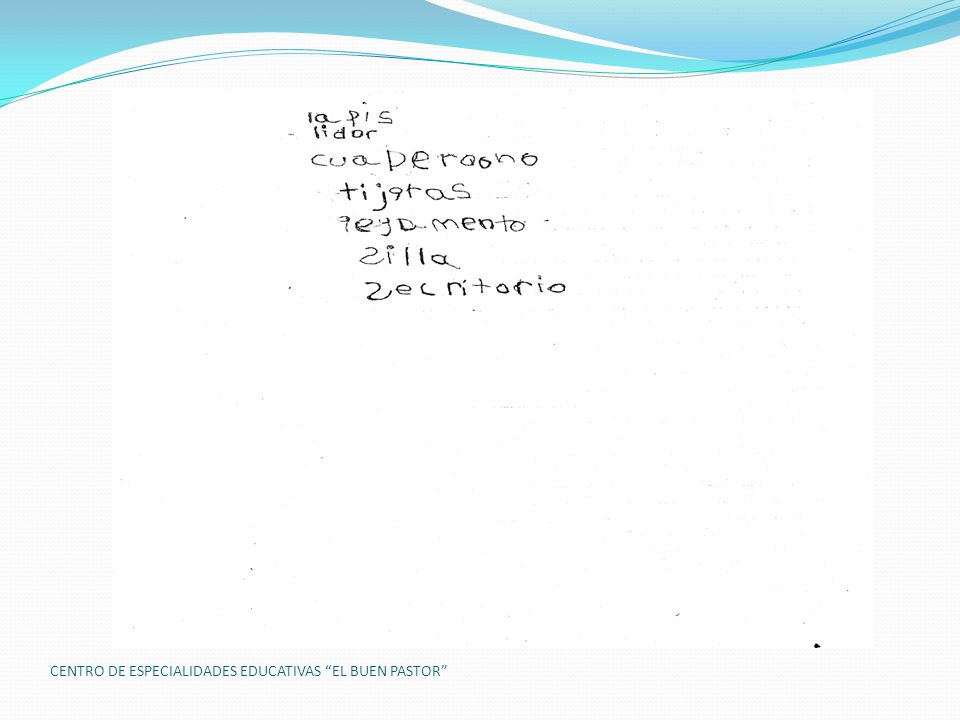 lapis
lidor
cuaperaono
tijeras
pegamento
zilla
zecritorio
CENTRO DE ESPECIALIDADES EDUCATIVAS “EL BUEN PASTOR”